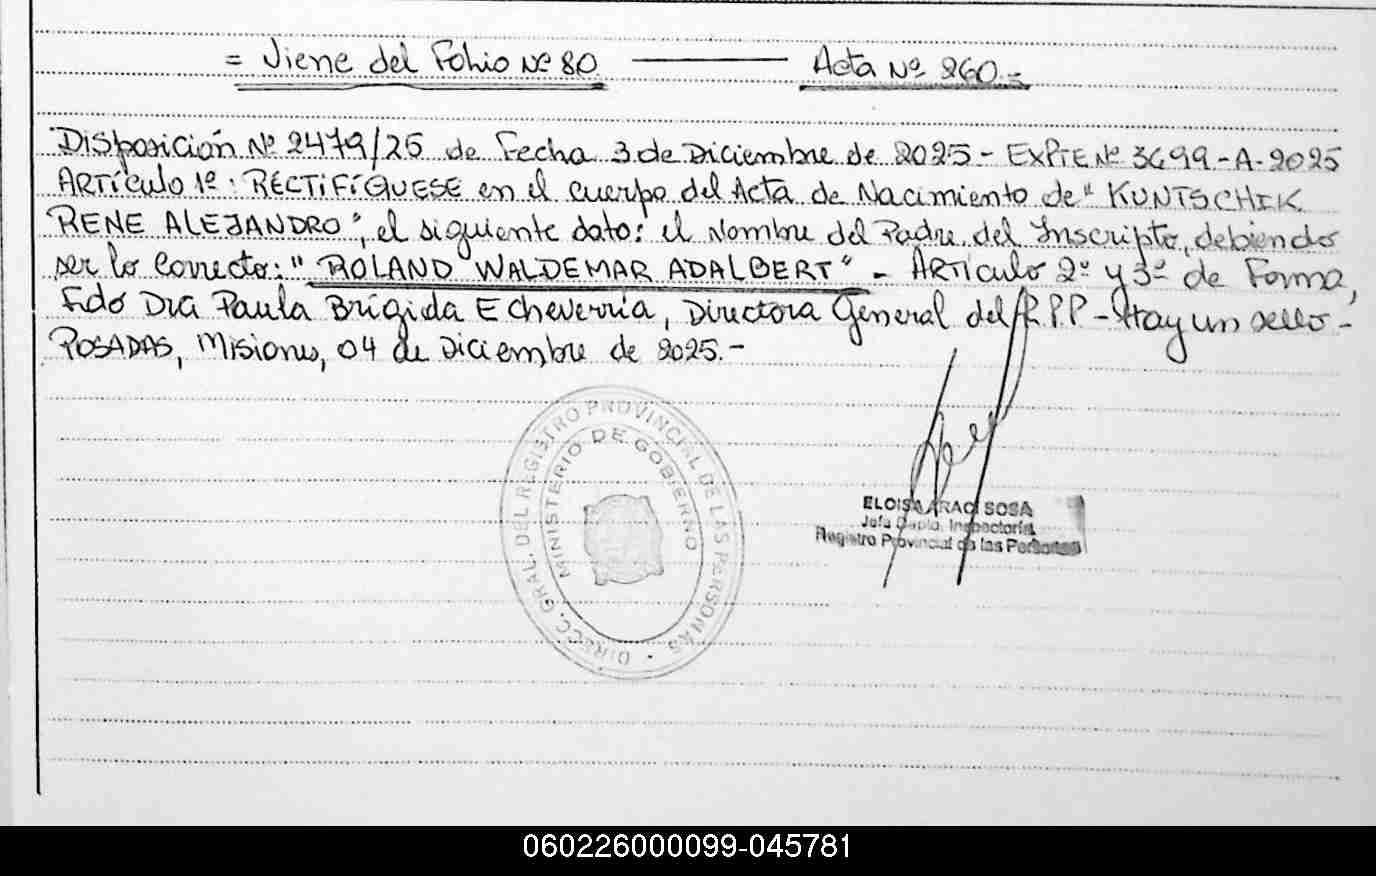 = Viene del Folio Nº 80 ——— Acta Nº 260.=
Disposición Nº 2479/25 de Fecha 3 de Diciembre de 2025 - EXPTE Nº 3699-A-2025
ARTÍCULO 1º: RECTIFÍQUESE en el cuerpo del Acta de Nacimiento de "KUNTSCHIK
RENE ALEJANDRO", el siguiente dato: el Nombre del Padre del Inscripto, debiendo
ser lo Correcto: "ROLAND WALDEMAR ADALBERT" - ARTÍCULO 2º y 3º de Forma,
Fdo Dra Paula Brígida Echeverría, Directora General del R.P.P - Hay un sello -
POSADAS, Misiones, 04 de Diciembre de 2025.-
DIRECC. GRAL. DEL REGISTRO PROVINCIAL DE LAS PERSONAS
MINISTERIO DE GOBIERNO
ELOISA ARACI SOSA
Jefa Depto. Inspectoría
Registro Provincial de las Personas
060226000099-045781